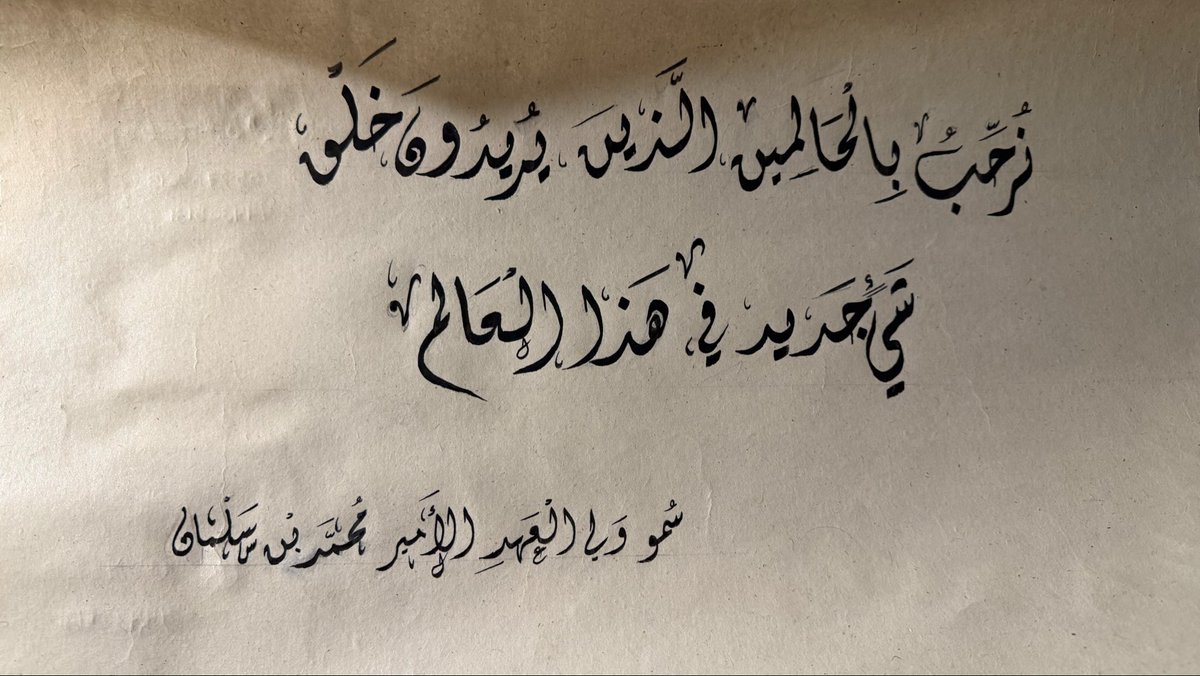 نُرَحِّبُ بِالْحَالِمِينَ الَّذِينَ يُرِيدُونَ خَلْقَ
شَيْءٍ جَدِيد فِي هَذَا الْعَالم
سُمو وَلي الْعَهدِ الأَمير مُحمَّد بْن سَلْمان